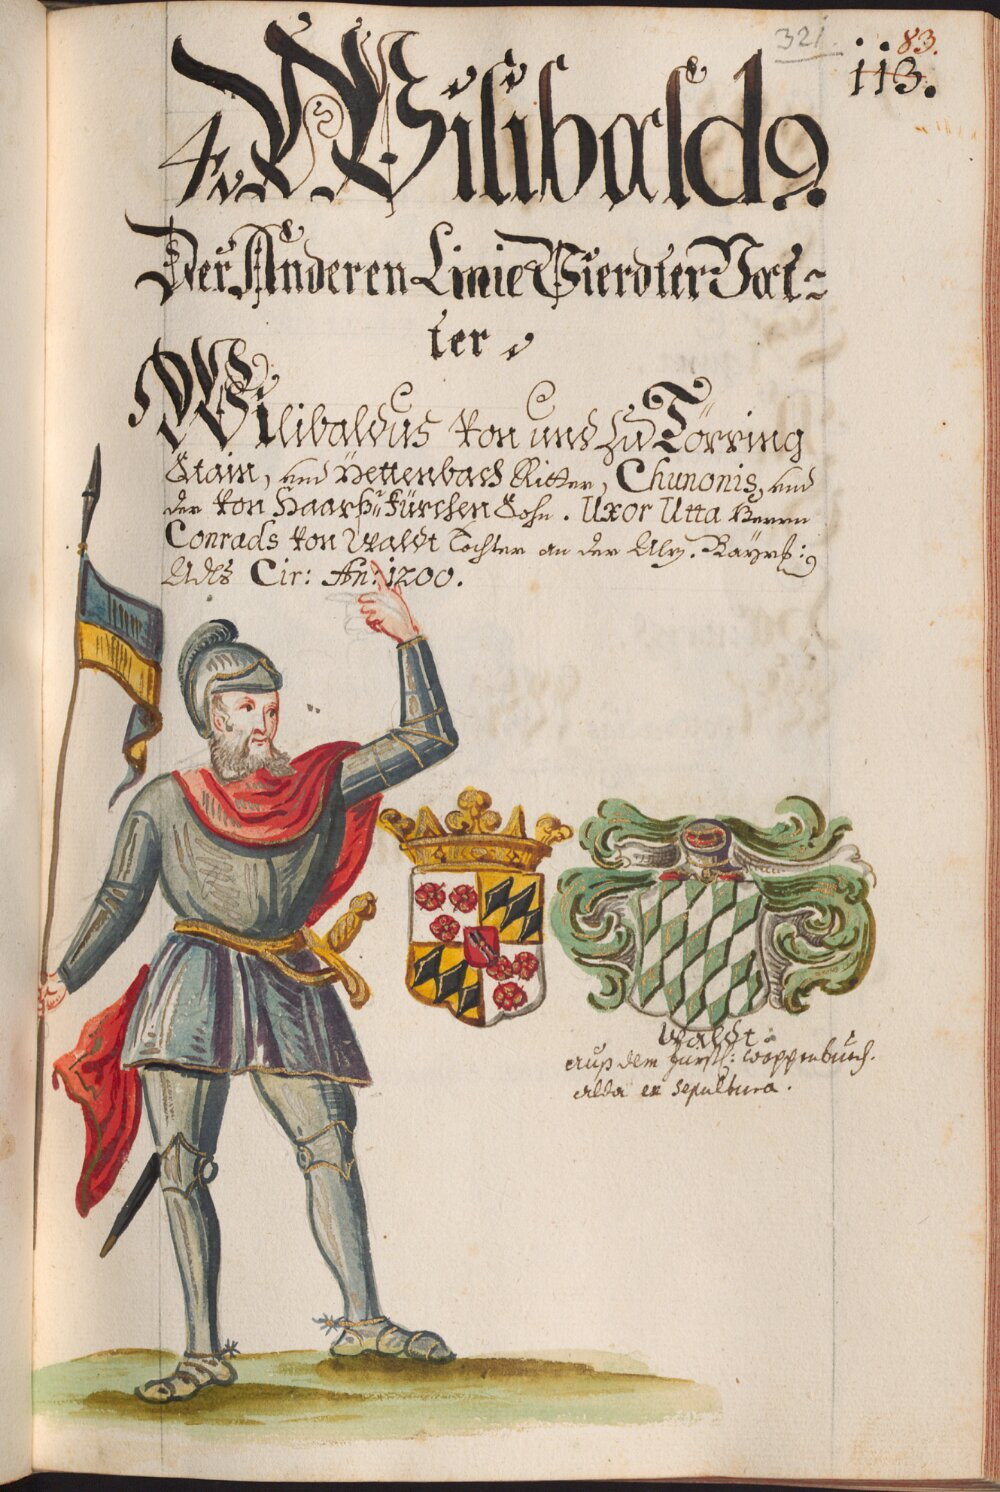 321.
83.
113.
4. Wilibald.
Der Anderen Linie Vierdter Vat-
ter.
Wilibaldus von und zu Törring
Stain, und Pettenbach Ritter, Chunonis, und
der von Haarskürchen Sohn. Uxor Utta Herrn
Conrads von Waldt Tochter an der Alz. Bayrs:
Adls Cir: An: 1200.
Waldt.
auß dem fürstl: Wappenbuch.
alda ex sepultura.